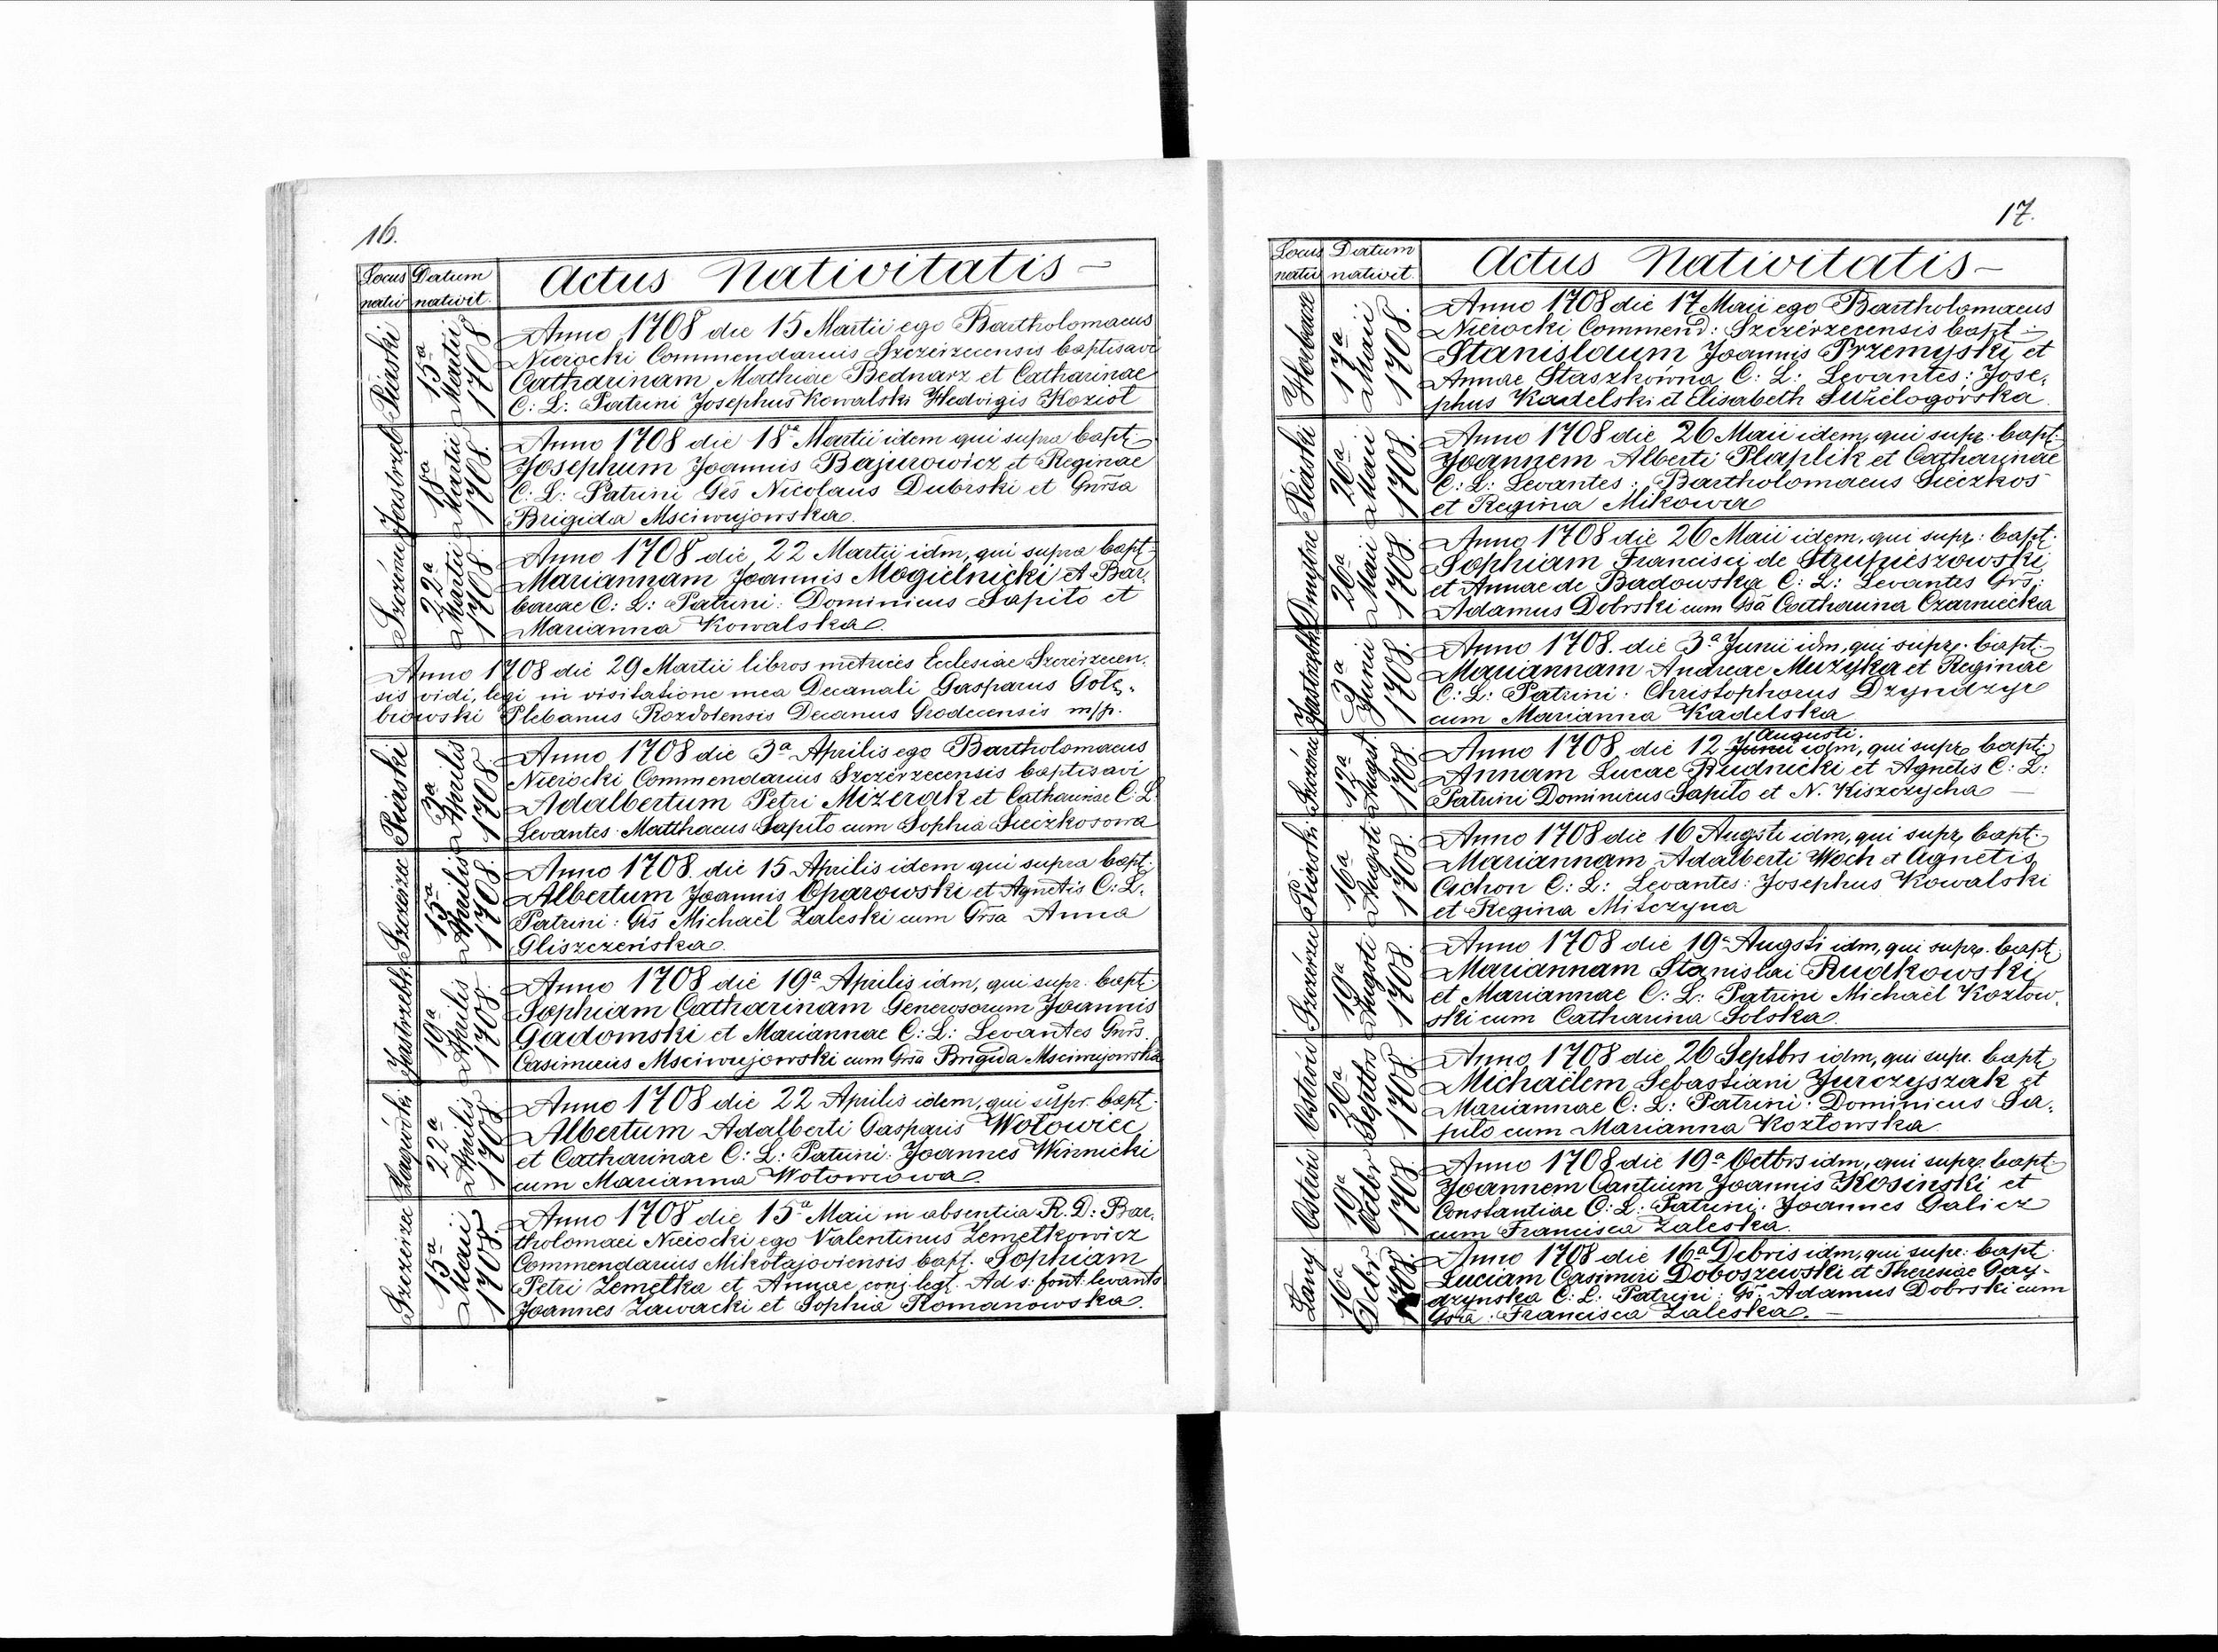 16.
Locus natu
Datum nativit.
Actus Nativitatis –
Piaski
15a Martii 1708
Anno 1708 die 15 Martii ego Bartholomaeus
Nierocki Commendarius Szczérzecensis baptisavi
Catharinam Mathiae Bednarz et Catharinae
C: L: Patrini Josephus Kowalski Hedvigis Kozioł
Jastrzęb
18a Martii 1708.
Anno 1708 die 18a Martii idem qui supra bapt:
Josephum Joannis Bajurowicz et Reginae
C: L: Patrini Gŝs Nicolaus Dubrski et Gnrsa
Brigida Msciwujowska.
22a Martii 1708.
Anno 1708 die 22 Martii idm, qui supra bapt:
Mariannam Joannis Mogielnicki et Bar,
barae C: L: Patrini: Dominicus Sapito et
Marianna Kowalska.
Anno 1708 die 29 Martii libros metrices Ecclesiae Szczérzecen,
sis vidi, legi in visitatione mea Decanali Gasparus Gołę,,
biowski Plebanus Rozdolensis Decanus Grodecensis m/p.
Piaski
3a Aprilis 1708.
Anno 1708 die 3a Aprilis ego Bartholomaeus
Nierocki Commendarius Szczérzecensis baptisavi
Adalbertum Petri Mizerak et Catharinae C: L
Levantes: Matthaeus Sapito cum Sophia Sieczkosowa
Szczeirzec
15a Aprilis 1708.
Anno 1708. die 15 Aprilis idem qui supra bapt:
Albertum Joannis Oparowski et Agnetis C: L:
Patrini: Gŝs Michaël Zaleski cum Gr̃sa Anna
Gliszczeńska.
Jastrzebk.
19a Aprilis 1708.
Anno 1708 die 19a Aprilis idm, qui supr. bapt:
Sophiam Catharinam Generosorum Joannis
Gadomski et Mariannae C: L: Levantes Gnr̃s
Casimirus Msciwujowski cum Gr̃sa Brigida Msciwujowska
Zagórski
22a Aprilis 1708.
Anno 1708 die 22 Aprilis idem, qui supr. bapt:
Albertum Adalberti Gasparis Wołowiec
et Catharinae C: L: Patrini: Joannes Winnicki
cum Marianna Wołowiowa.
Szczeirzec
15a Maii 1708.
Anno 1708 die 15a Maii in absentia R. D: Bar,
tholomaei Nieiocki ego Valentinus Zemełkowicz
Commendarius Mikołajoviensis bapt. Sophiam
Petri Zemełka et Annae conj. legt. Ad s: font: levants
Joannes Zawacki et Sophia Romanowska.
17.
Locus natu
Datum nativit
Actus Nativitatis –
17a Maii 1708.
Anno 1708 die 17 Maii ego Bartholomaeus
Nierocki Commend: Szczérzecensis bapt:
Stanislaum Joannis Przemyski et
Annae Staszkówna C: L: Levantes: Jose,
phus Kadelski et Elisabeth Swiełogórska.
Piaski
26a Maii 1708.
Anno 1708 die 26 Maii idem, qui supr. bapt:
Joannem Alberti Płaplik et Catharinae
C: L: Levantes: Bartholomaeus Sieczkos
et Regina Mikowa
Dmytre
26a Maii 1708.
Anno 1708 die 26 Maii idem, qui supr: bapt:
Sophiam Francisci de Strupieszowski
et Annae de Badowska C: L: Levantes Gr̃s:
Adamus Dobrski cum Gŝa Catharina Czarniecka
Jastrzębk
3a Junii 1708.
Anno 1708. die 3a Junii idm, qui supr. bapt:
Mariannam Andreae Muzyka et Reginae
C: L: Patrini: Christophorus Dzyndzyr
cum Marianna Kadelska
12a Augst. 1708.
Augusti.
Anno 1708. die 12 Junii idm, qui supr. bapt:
Annam Lucae Rudnicki et Agnetis C: L:
Patrini Dominicus Sapito et N. Kiszczycha –
Piaski
16a Augsti 1708.
Anno 1708 die 16 Augsti idm, qui supr. bapt:
Mariannam Adalberti Woch et Agnetis
Cichon C: L: Levantes: Josephus Kowalski
et Regina Miśczyna
Szczerzec
19a Augsti 1708.
Anno 1708 die 19a Augsti idm, qui supr. bapt:
Mariannam Stanislai Rudkowski
et Mariannae C: L: Patrini Michaël Kozłow,
ski cum Catharina Solska.
Ostrów
26a Septbrs 1708.
Anno 1708 die, 26 Septbrs idm, qui supr. bapt:
Michaëlem Sebastiani Jurczyszak et
Mariannae C: L: Patrini: Dominicus Sa,
pito cum Marianna Kozłowska.
Ostrów
19a Octbr 1708.
Anno 1708 die 19a Octbrs idm, qui supr. bapt:
Joannem Cantium Joannis Kosinski et
Constantiae C: L: Patrini: Joannes Galicz
cum Francisca Zaleska.
Łany
16a Debr 1708.
Anno 1708 die 16a Debris idm, qui supr: bapt:
Luciam Casimiri Doboszewski et Theresiae Gay-
dzynska C: L: Patrini: Gŝ. Adamus Dobrski cum
Gsra: Francisca Zaleska. –